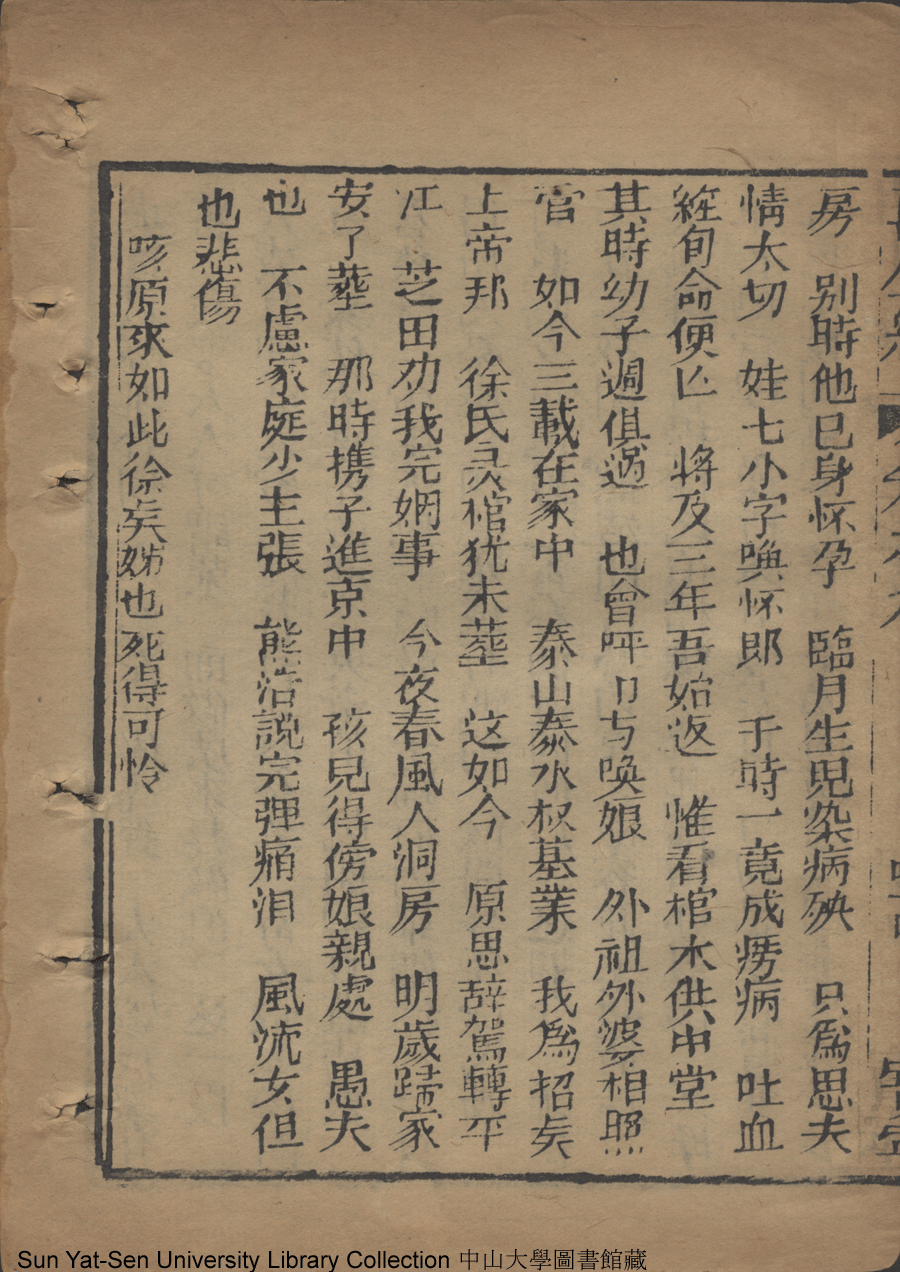 房　别時他巳身怀孕　臨月生児染病殃　只爲思夫
情太切　娃七小字喚怀郎　于時一竟成癆病　吐血
經旬命便亡　將及三年吾始返　惟看棺木供中堂
其時幼子週俱過　也會呼　与喚娘　外祖外婆相照
官　如今三載在家中　泰山泰水权基業　我爲招矣
上帝邦　徐氏灵棺犹未塟　这如今　原思辞駕轉平
江　芝田劝我完婣事　今夜春風人洞房　明歲歸家
安了塟　那時携子進京中　孩兒得傍娘親處　愚夫
也　不慮家庭少主張　熊浩説完弹痛泪　風流女但
也悲傷
咳原來如此徐矣姊也死得可怜
Sun Yat-Sen University Library Collection 中山大學圖書館藏